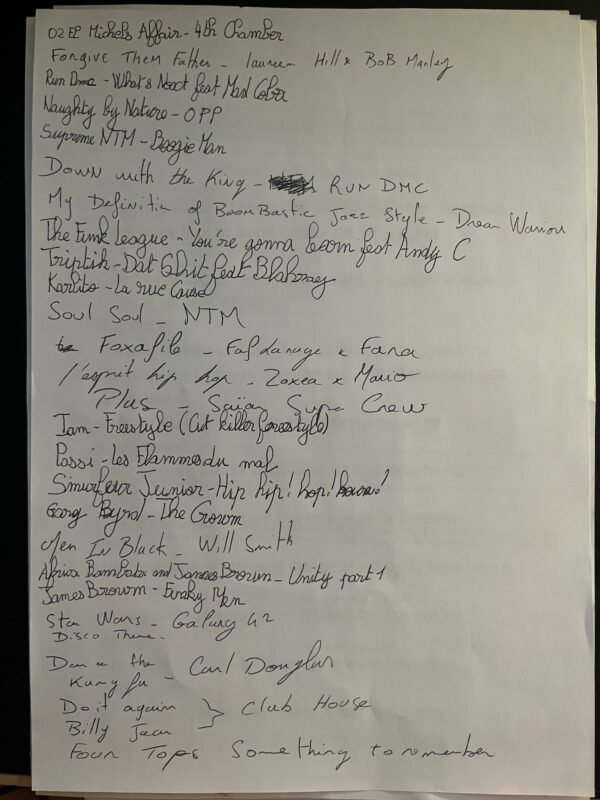 02 EP Michels Affair - 4th Chamber
Forgive Them Father - Laureen Hill x Bob Marley
Run Dmc - What's Next feat Mad Cobra
Naughty by Nature - OPP
Supreme NTM - Boogie Man
Down with the King - RUN DMC
My Definition of BoomBastic Jazz Style - Dream Warriors
The Funk League - You're gonna learn feat Andy C
Triptik - Dat Shit feat Blahzay
Karlito - La rue Cause
Soul Soul - NTM
Foxafile - Faf larage x Fana
l'esprit hip hop - Zoxea x Mario
Plus - Saïan Supa Crew
Iam - Freestyle (Cut killer freestyle)
Passi - Les Flammes du mal
Smurfeur Jeunior - Hip hip! hop! houra!
Gary Byrd - The Crown
Men In Black - Will Smith
Africa Bambata and James Brown - Unity part 1
James Brown - Funky Men
Star Wars - Galaxy 42
Disco Theme -
Dance the - Carl Douglas
Kung fu
Do it again } Club House
Billy Jean
Four Tops Something to remember